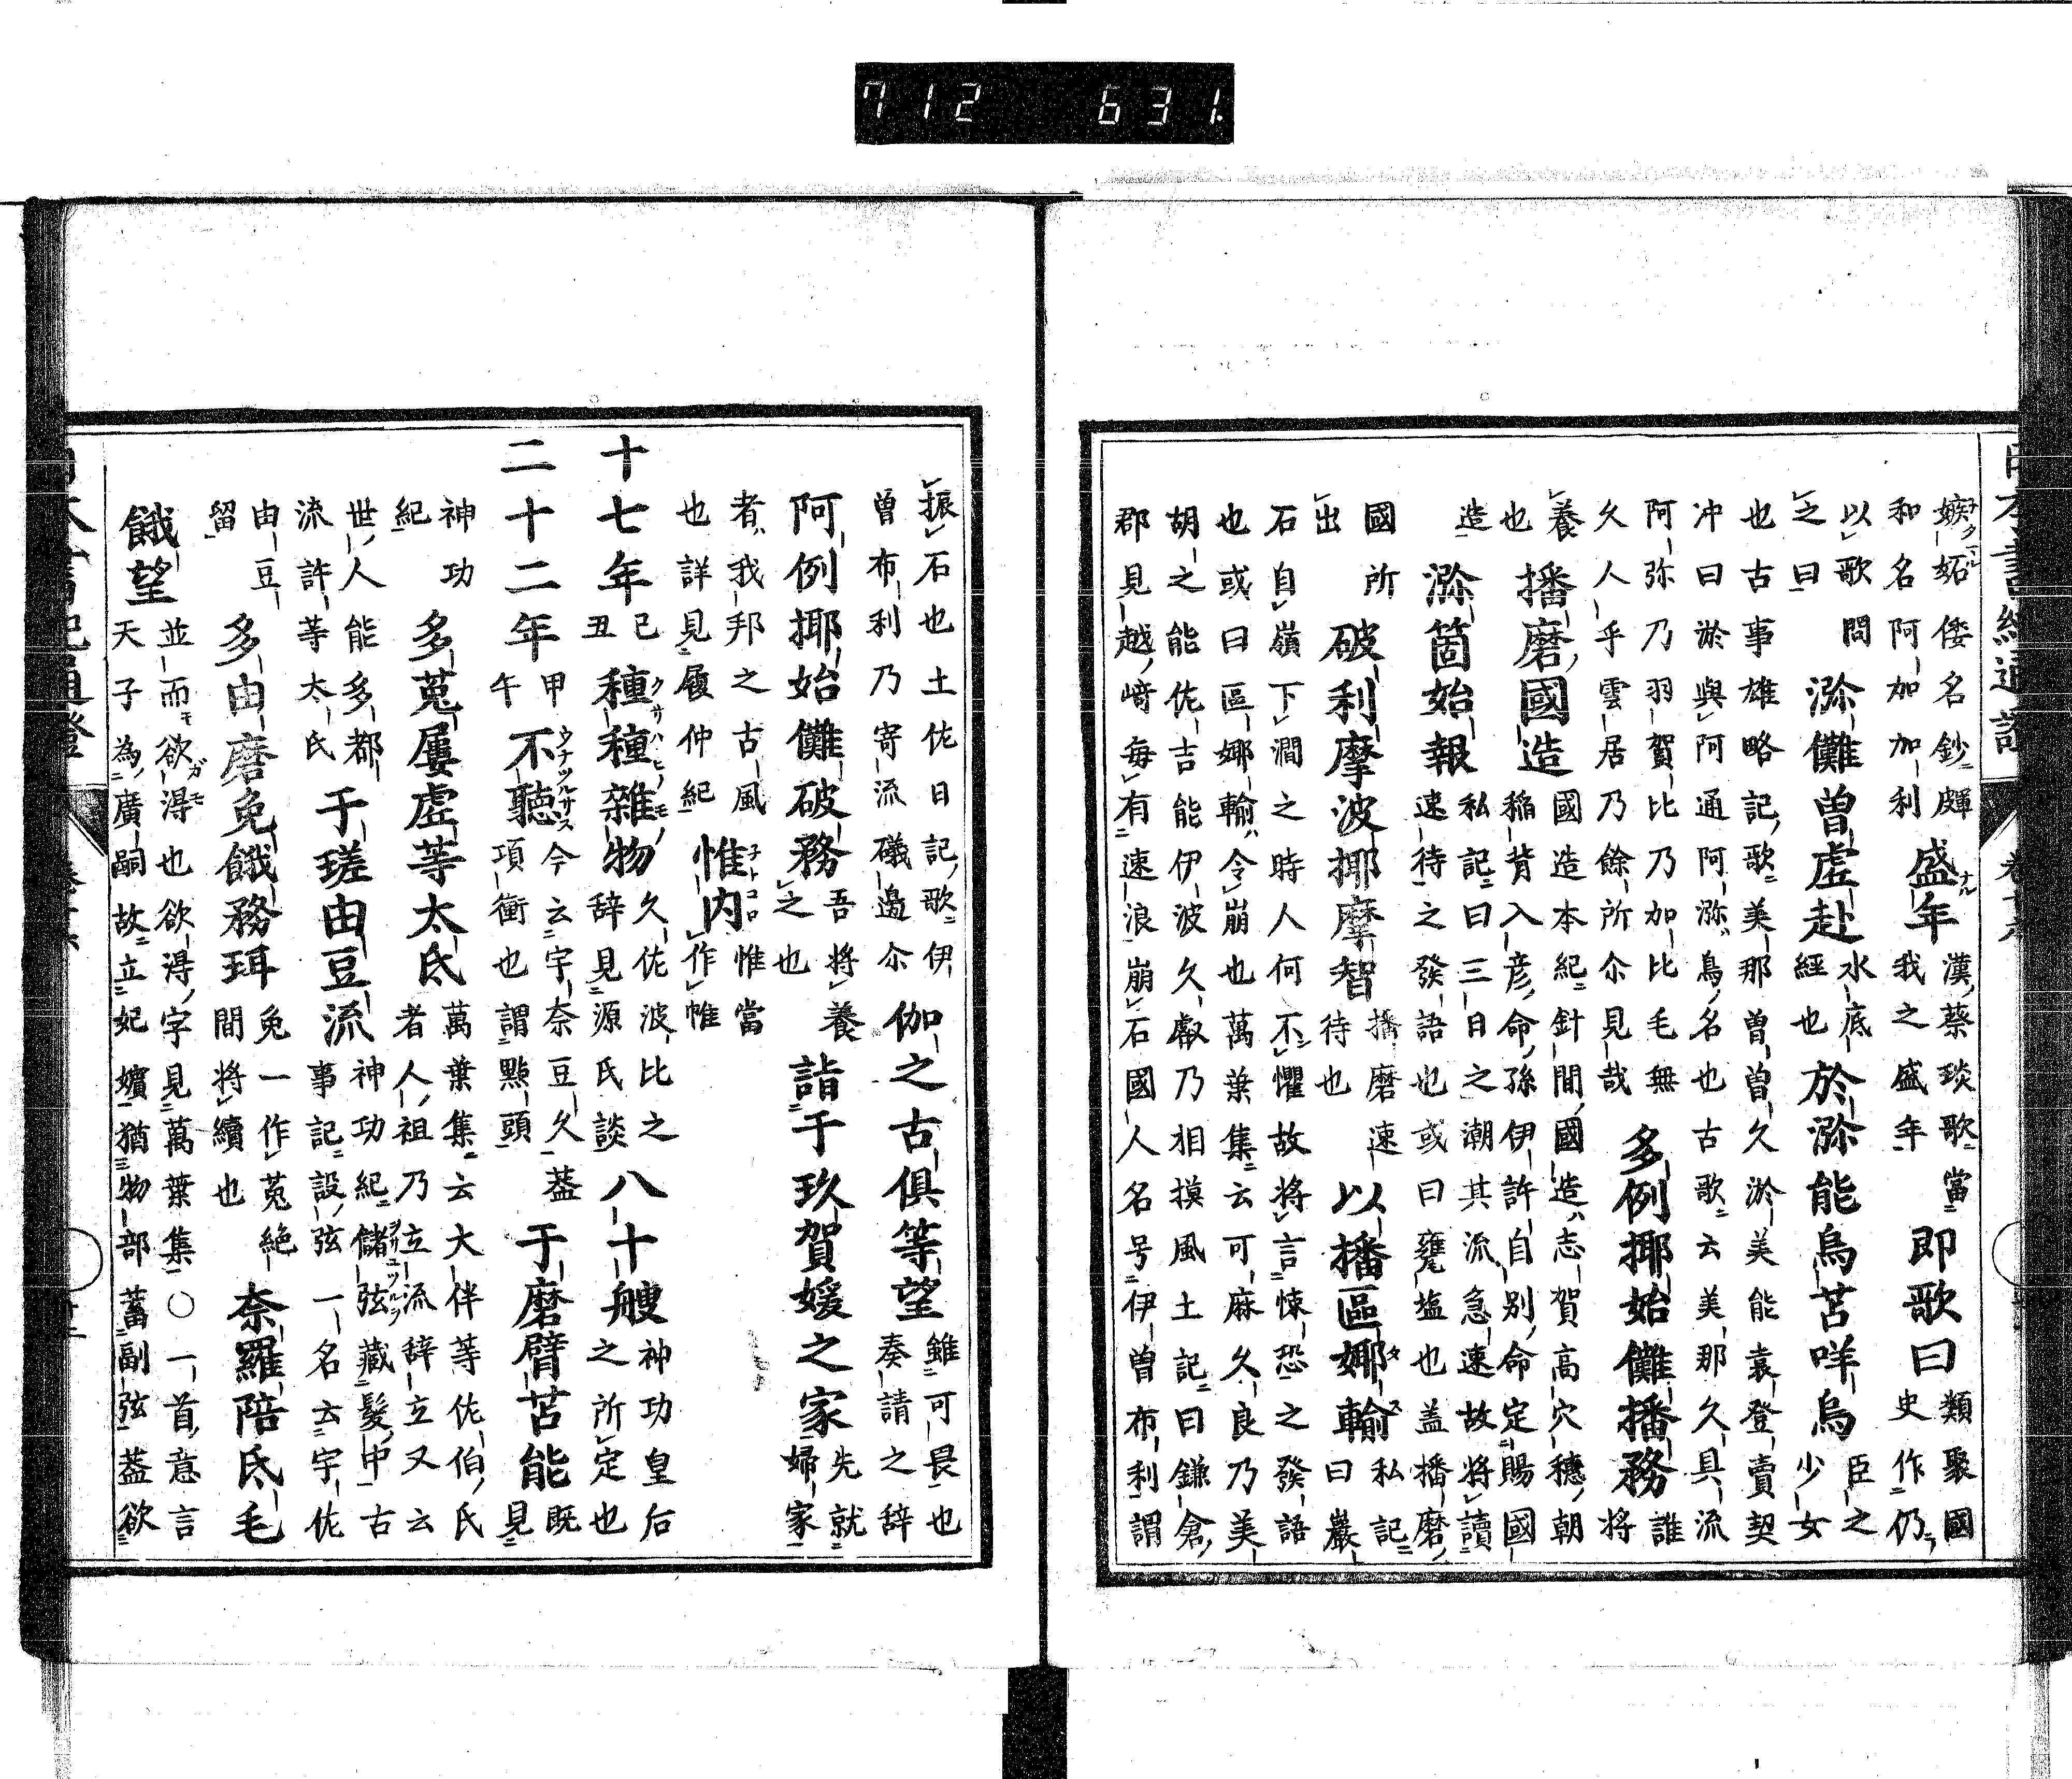 712 631.
嫉妬倭名鈔頗
和名阿加加利
盛年
漢蔡琰歌當
我之盛年
即歌曰
類聚國
史作仍
以歌問
之曰
瀰儺曾虛赴
水底
經也
於瀰能烏苫咩烏
臣之
少女
也古事雄略記歌美那曾曾久淤美能袁登賣契
冲曰淤與阿通阿瀰鳥名也古歌云美那久具流
阿弥乃羽賀比乃加比毛無
久人乎雲居乃餘所尒見哉
多例揶始儺播務
誰
將
養
播磨國造
國造本紀針間國造志賀高穴穗朝
稲背入彦命孫伊許自別命定賜國
也
造
瀰箇始報
私記曰三日之潮其流急速故將讀
速待之發語也或曰甕塩也盖播磨
國所
出
破利摩波揶摩智
播磨速
待也
以播區娜輸
私記
曰巖
石自嶺下澗之時人何不懼故將言悚恐之發語
也或曰區娜輸令崩也萬葉集云可麻久良乃美
胡之能佐吉能伊波久叡乃相摸風土記曰鎌倉
郡見越﨑毎有速浪崩石國人名号伊曽布利謂
振石也土佐日記歌伊
曽布利乃寄流礒邉尒
伽之古俱等望
雖可畏也
奏請之辞
阿例揶始儺破務
吾將養
之也
詣于玖賀媛之家
先就
婦家
者我邦之古風
也詳見履仲紀
惟内
惟當
作帷
十七年
己
丑
種種雜物
久佐波比之
辞見源氏談
八十艘
神功皇后
之所定也
二十二年
甲
午
不聽
今云宇奈豆久蓋
項衝也謂點頭
于磨臂苫能
既
見
神功
紀
多菟屢虛等太氐
萬葉集云大伴等佐伯氏
者人祖乃立流辞立又云
世人能多都
流許等太氏
于瑳由豆流
神功紀儲弦藏髮中古
事記設弦一名云宇佐
由豆
留
多由磨免餓務珥
免一作菟絶
間將續也
奈羅陪氐毛
餓望
並而欲淂也欲淂字見萬葉集〇一首意言
天子為廣嗣故立妃嬪猶物部蓄副弦葢欲